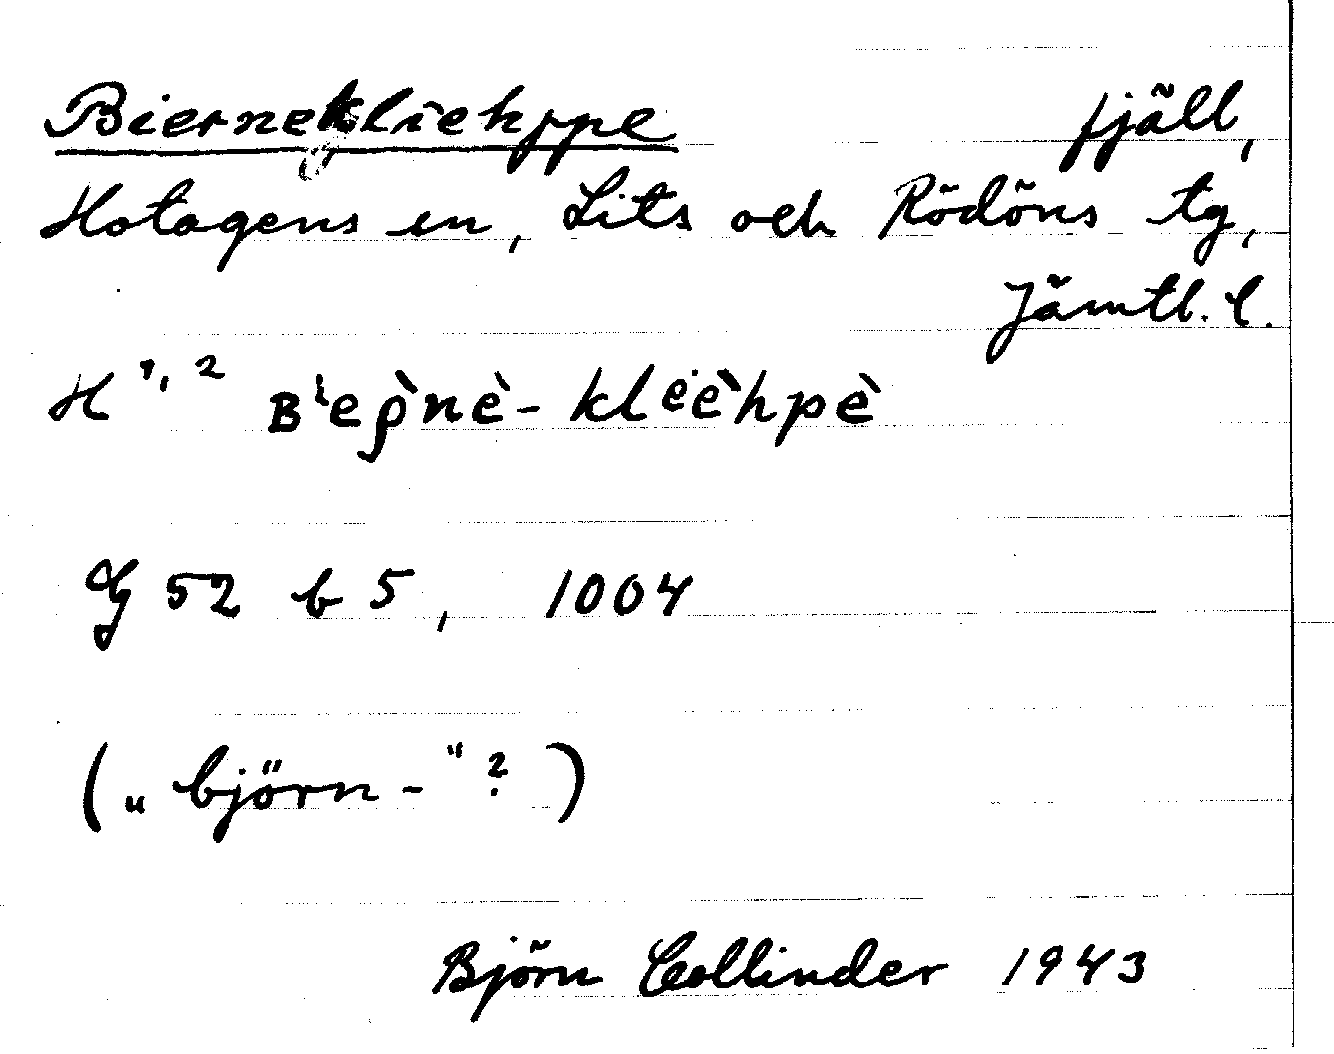 Biernekliehppe fjäll,
Hotagens sn, Lits och Rödöns tg,
Jämtl. l.
H 1, 2 Bᶤeρ̀nè- kleèhpè
G 52 b 5, 1004
(„björn-“?)
Björn Collinder 1943